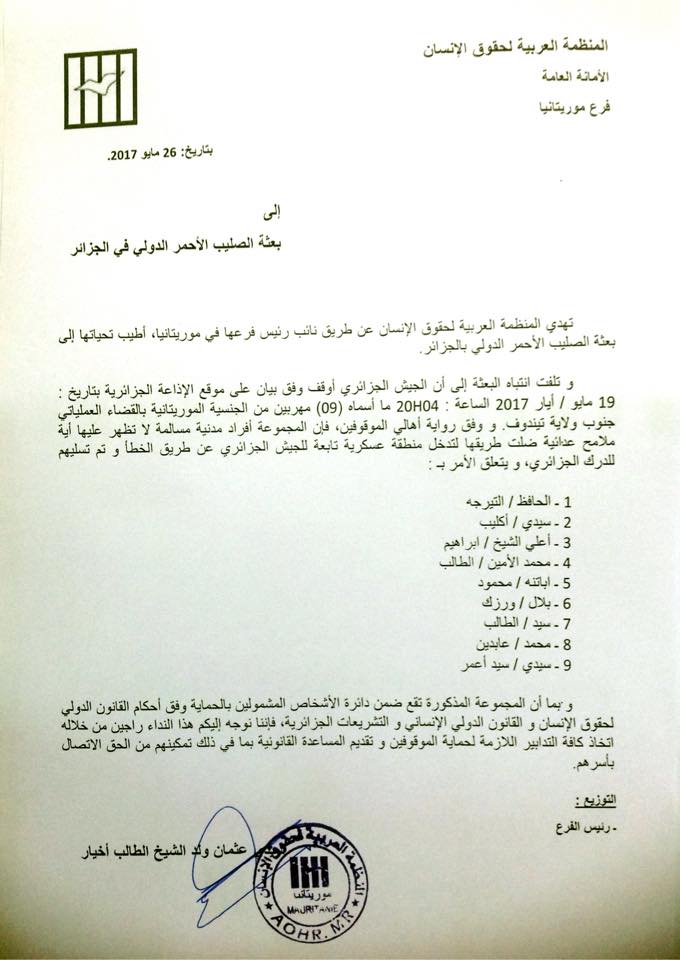 المنظمة العربية لحقوق الإنسان
الأمانة العامة
فرع موريتانيا
بتاريخ: 26 مايو 2017.
إلى
بعثة الصليب الأحمر الدولي في الجزائر
تهدي المنظمة العربية لحقوق الإنسان عن طريق نائب رئيس فرعها في موريتانيا، أطيب تحياتها إلى
بعثة الصليب الأحمر الدولي بالجزائر.
و تلفت انتباه البعثة إلى أن الجيش الجزائري أوقف وفق بيان على موقع الإذاعة الجزائرية بتاريخ :
19 مايو / أيار 2017 الساعة : 20H04 ما أسماه (09) مهربين من الجنسية الموريتانية بالقضاء العملياتي
جنوب ولاية تيندوف. و وفق رواية أهالي الموقوفين، فإن المجموعة أفراد مدنية مسالمة لا تظهر عليها أية
ملامح عدائية ضلت طريقها لتدخل منطقة عسكرية تابعة للجيش الجزائري عن طريق الخطأ و تم تسليهم
للدرك الجزائري، و يتعلق الأمر بـ :
1 ـ الحافظ / التيرجه
2 ـ سيدي / أكليب
3 ـ أعلي الشيخ / ابراهيم
4 ـ محمد الأمين / الطالب
5 ـ اباتنه / محمود
6 ـ بلال / ورزك
7 ـ سيد / الطالب
8 ـ محمد / عابدين
9 ـ سيدي / سيد أعمر
و بما أن المجموعة المذكورة تقع ضمن دائرة الأشخاص المشمولين بالحماية وفق أحكام القانون الدولي
لحقوق الإنسان و القانون الدولي الإنساني و التشريعات الجزائرية، فإننا نوجه إليكم هذا النداء راجين من خلاله
اتخاذ كافة التدابير اللازمة لحماية الموقوفين و تقديم المساعدة القانونية بما في ذلك تمكينهم من الحق الاتصال
بأسرهم.
التوزيع :
ـ رئيس الفرع
عثمان ولد الشيخ الطالب أخيار
المنظمة العربية لحقوق الإنسان
موريتانيا
MAURITANIE
AOHR. MR